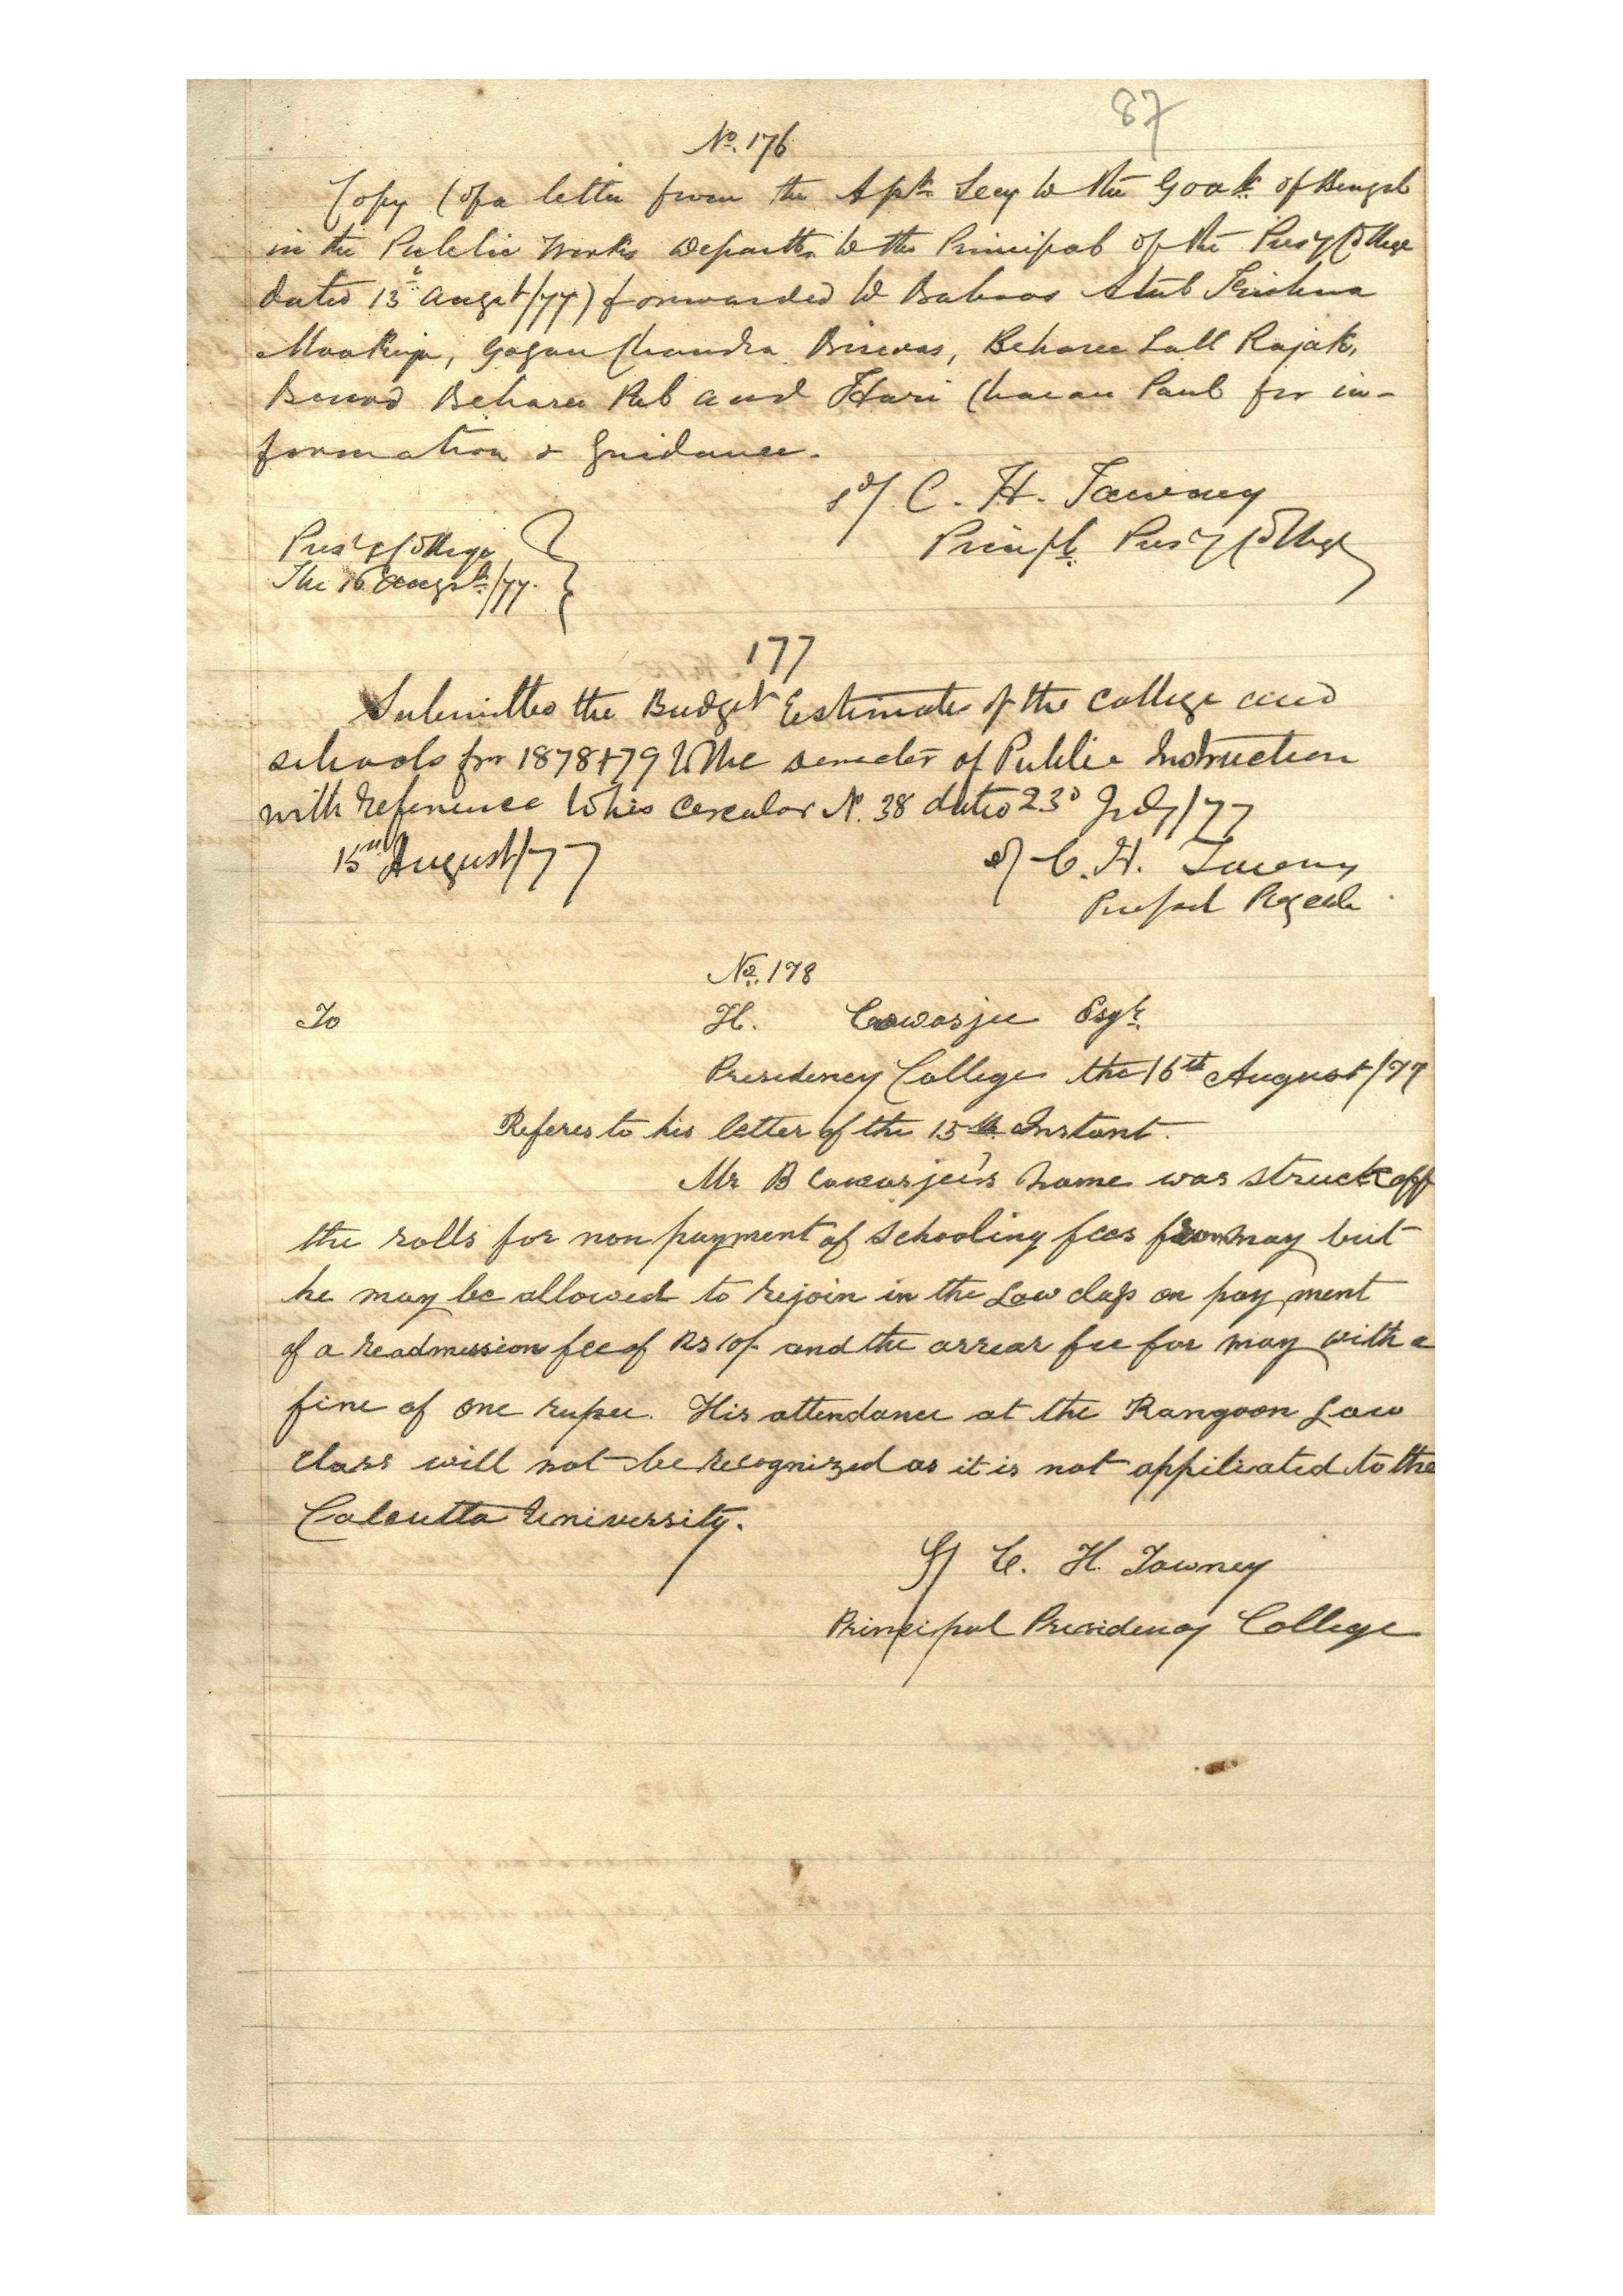 87
No. 176
Copy (of a letter from the Asst. Secy to the Govt. of Bengal
in the Public Works Departtn to the Principal of the Presy College
dated 13th Augst/77) forwarded to Baboos Atul Krishna
Mookerja, Gagan Chandra Biswas, Beharee Lall Rajak,
Benod Beharee Pal and Hari Charan Paul for in-
formation & Guidance.
sd/ C. H. Tawney
Princpl. Presy College
Presy College
The 16 Augst/77.
177
Submitted the Budget Estimates of the College and
schools for 1878+79 to the Director of Public Instruction
with reference to his Circular N. 38 dated 23d July/77
15th August/77
sd/ C. H. Tawney
Presy
No. 178
To H. Cowasjee Esqr.
Presidency College the 16th August/77
Referes to his letter of the 15th Instant.
Mr B Cowasjee's name was struck off
the rolls for non payment of schooling fees from may but
he may be allowed to rejoin in the Law class on payment
of a readmission fee of Rs 10/- and the arrear fee for may with a
fine of one rupee. His attendance at the Rangoon Law
class will not be recognized as it is not affiliated to the
Calcutta University.
Sd/ C. H. Tawney
Principal Presidency College